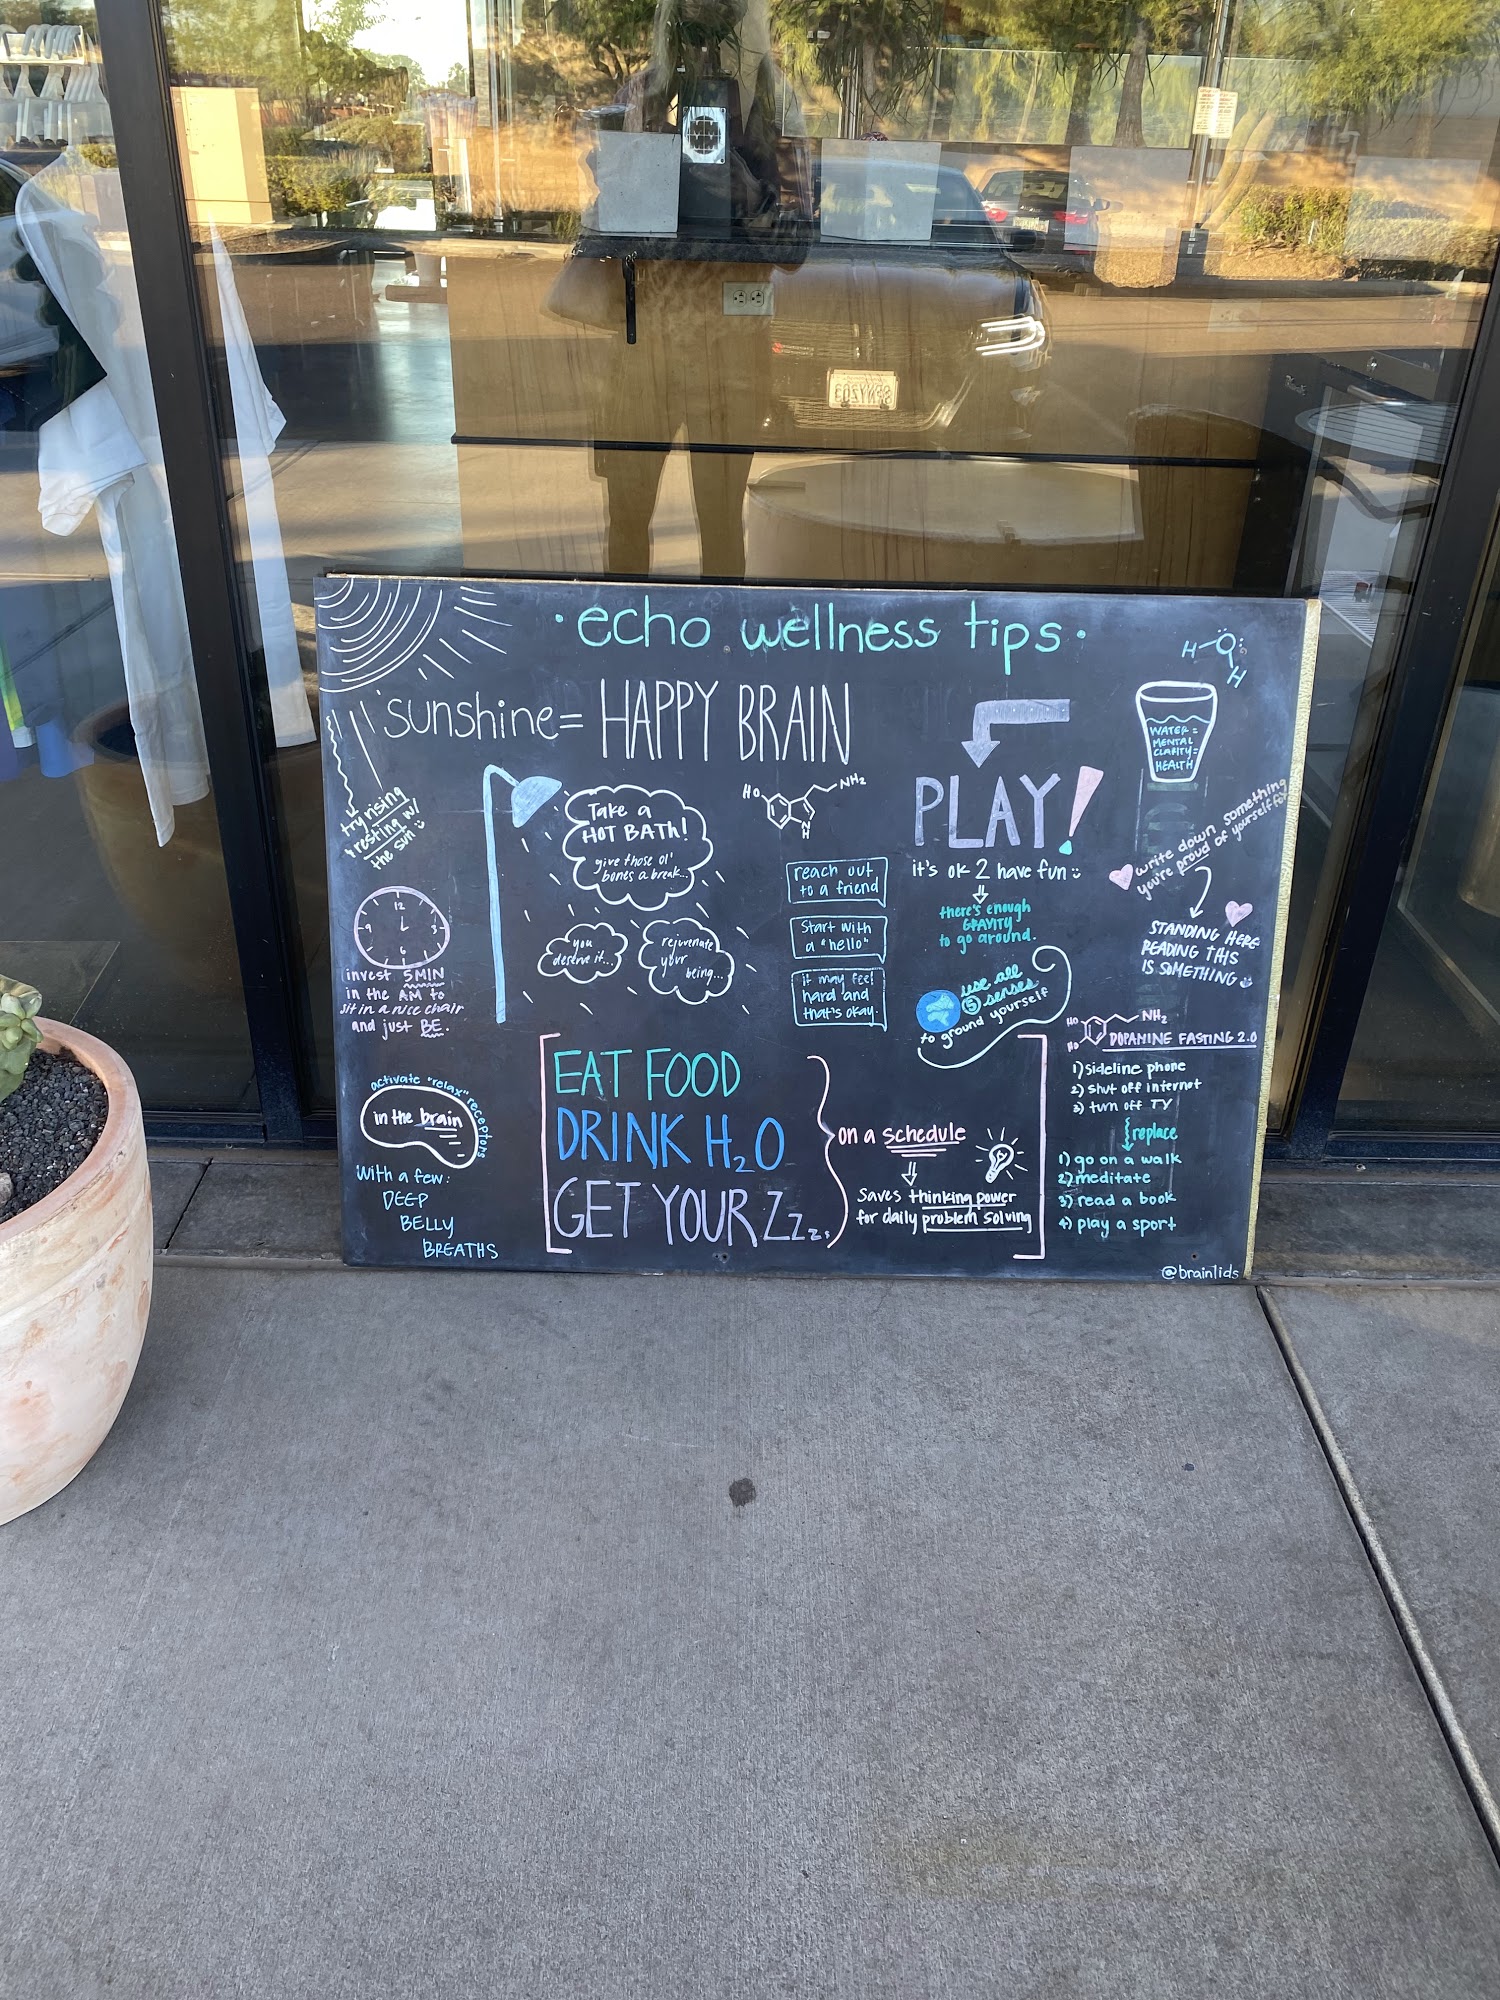 · echo wellness tips ·
sunshine = HAPPY BRAIN
try rising
+ resting w/
the sun
12
3
6
9
invest 5MIN
in the AM to
sit in a nice chair
and just BE.
activate "relax" receptors
in the brain
with a few:
DEEP
BELLY
BREATHS
Take a
HOT BATH!
give those ol'
bones a break...
you
deserve it...
rejuvenate
your
being...
HO
NH2
N
H
reach out
to a friend
Start with
a "hello"
it may feel
hard and
that's okay.
PLAY!
it's ok 2 have fun
there's enough
GRAVITY
to go around.
use all
5 senses
to ground yourself
H-O
H
WATER =
MENTAL
CLARITY =
HEALTH
write down something
you're proud of yourself for
STANDING HERE
READING THIS
IS SOMETHING
HO
HO
NH2
DOPAMINE FASTING 2.0
1) sideline phone
2) shut off internet
3) turn off TV
replace
1) go on a walk
2) meditate
3) read a book
4) play a sport
EAT FOOD
DRINK H2O
GET YOUR Zzzz
on a schedule
saves thinking power
for daily problem solving
@brain1ids